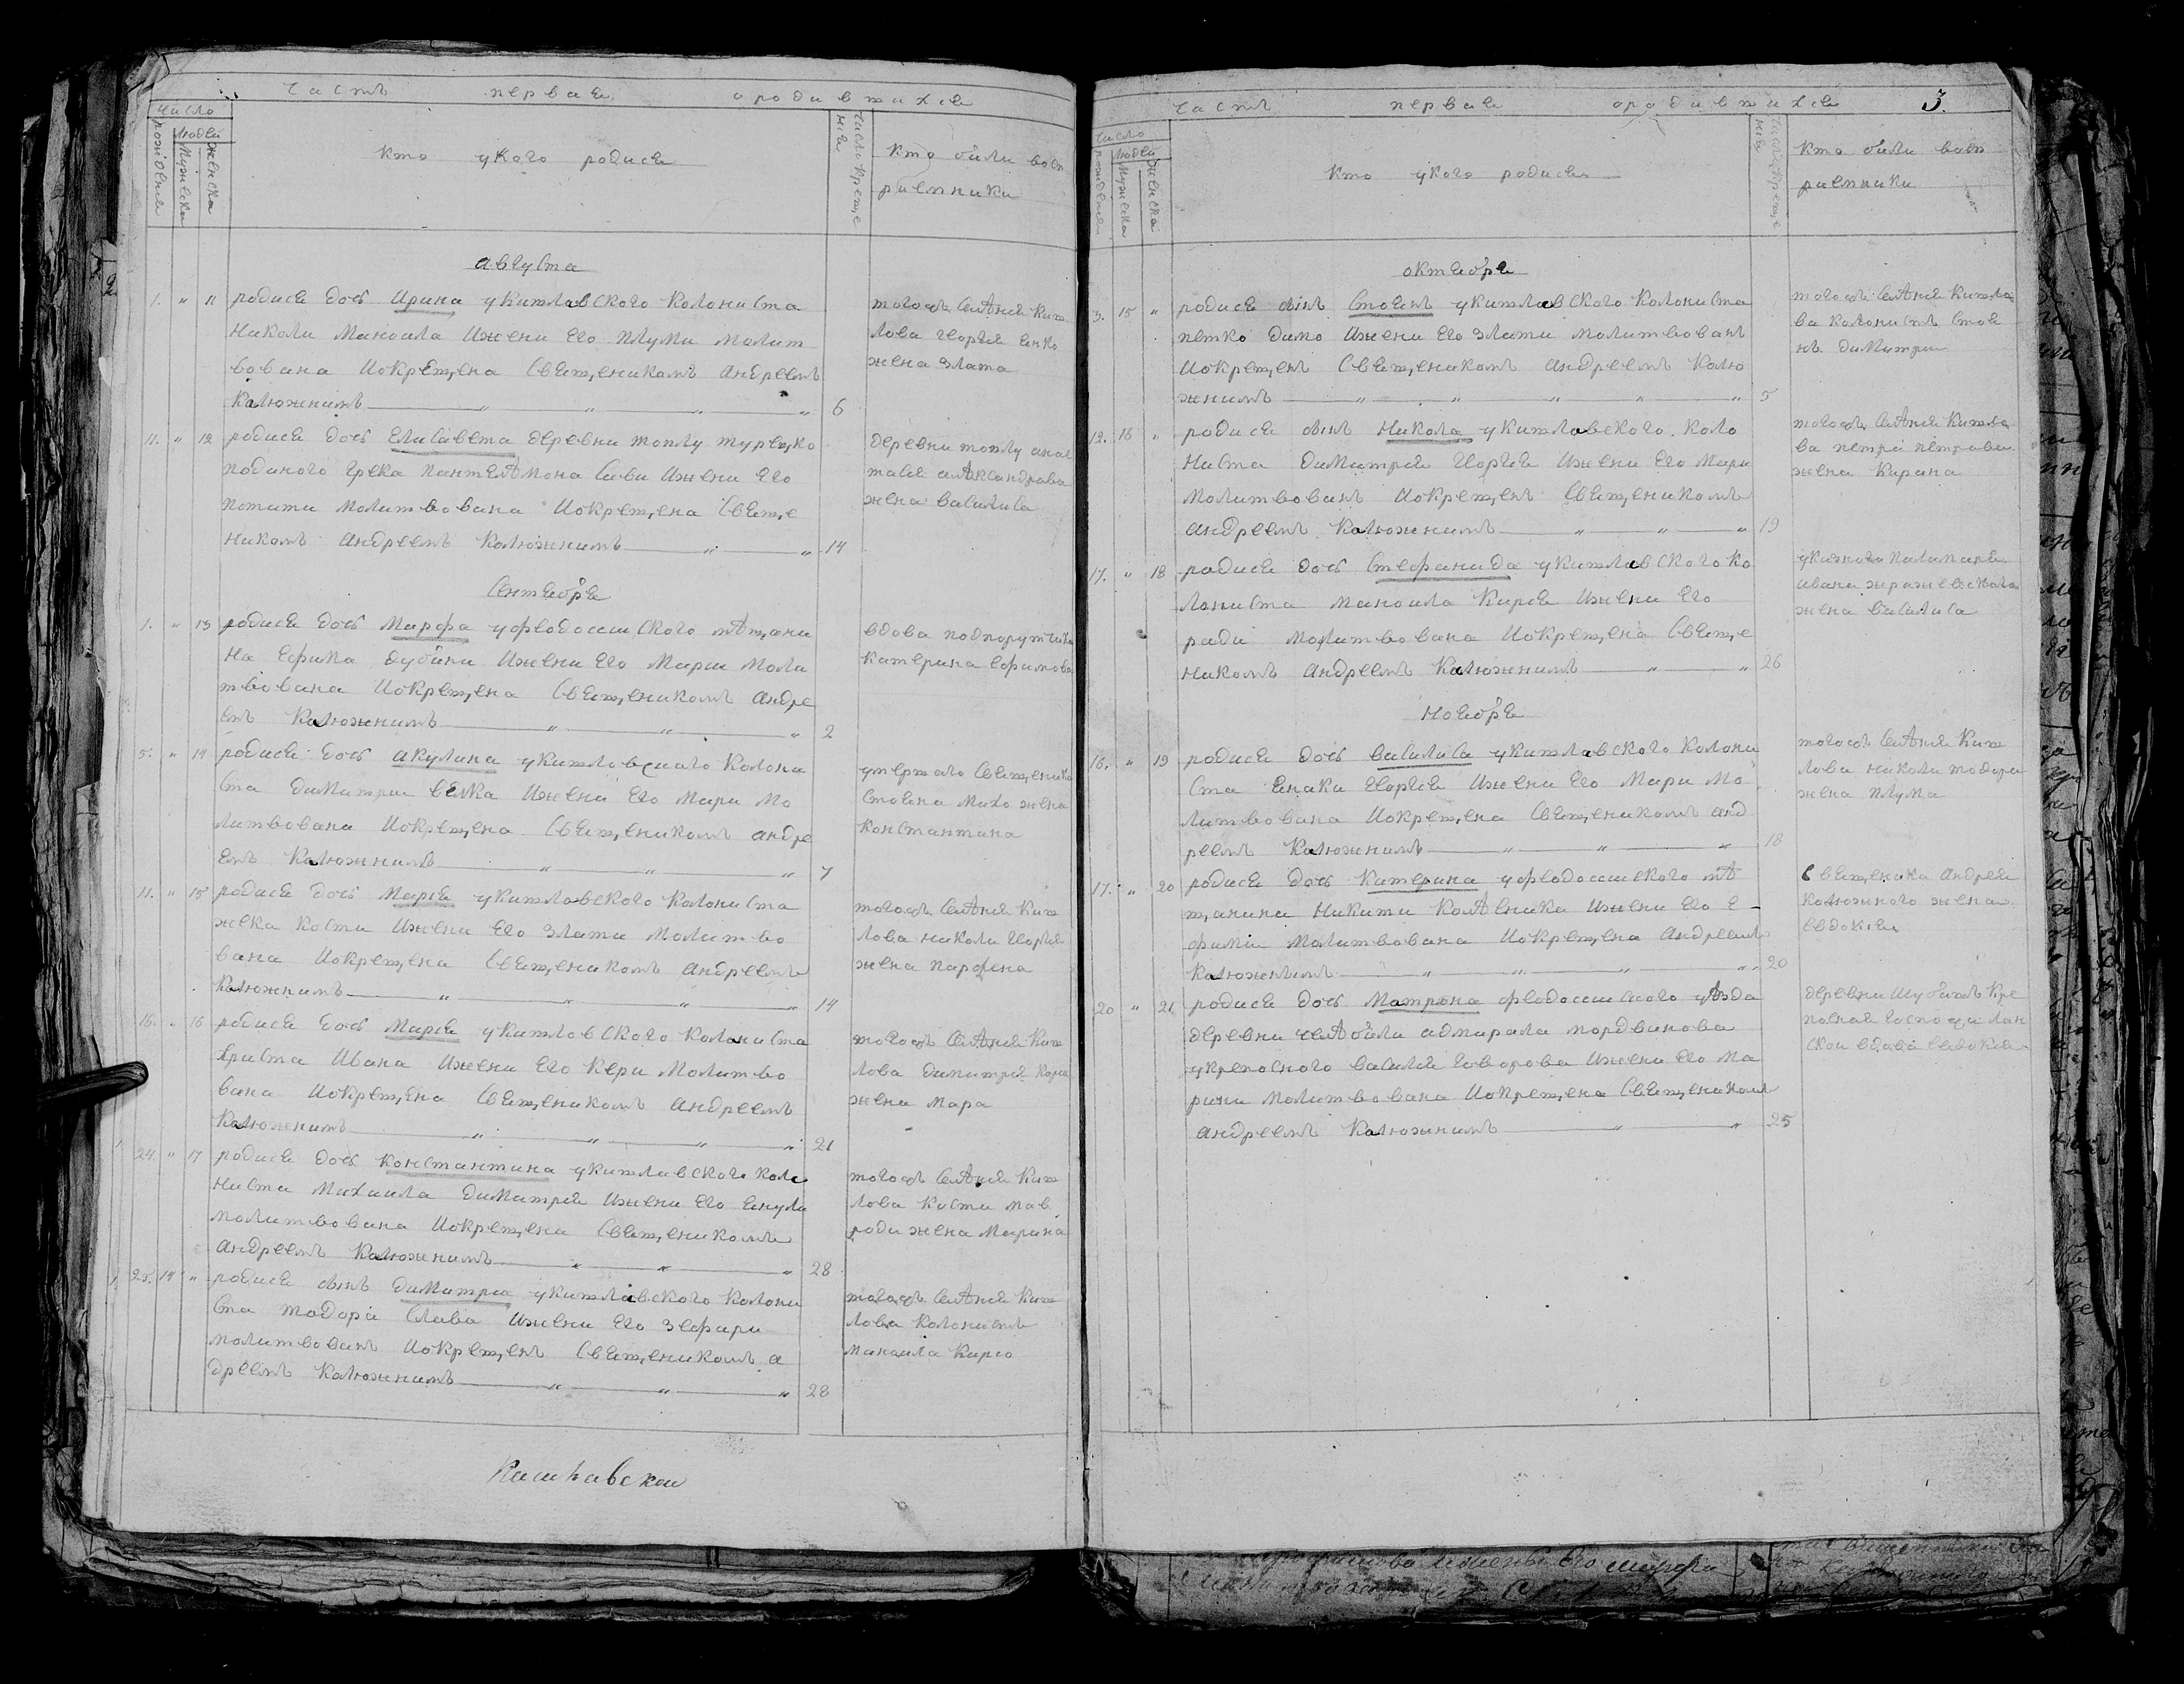 часть первая о родившихся
число
рождения
людей
мужеска
женска
кто у кого родися
число креще
ния
кто были восп
риемники
августа
1. " 11 родися дочь Ирина у кишлавского колониста
николи маноила ижени его плуми молит
вована иокрещена священикомъ андреемъ
калюжнимъ 6
тогожъ селѣния киш
лова георгия енко
жена злата
11. " 12 родися дочь Елисавета деревни топлу турецко
поданого грека пантелѣмона сави ижени его
потити молитвована иокрещена свяще
никомъ андреемъ калюжнимъ 14
деревни топлу анас
тасия алѣксандрова
жена василиса
сентября
1. " 13 родися дочь Марфа уфеодосийского мѣщани
на ефима дубини ижени его марии моли
твована иокрещена священикомъ андре
емъ калюжнимъ 2
вдова подпорутчика
катерина ефимова
5. " 14 родися дочь акулина укишловскаго колони
ста димитрия вѣлка ижени его мари мо
литвована иокрещена священикомъ андре
емъ калюжнимъ 7
умершаго священика
стояна михо жена
константина
11. " 15 родися дочь Мария укишлавского колониста
жека кости ижени его злати молитво
вана иокрещена священикомъ андреемъ
калюжнимъ 14
тогожъ селѣния киш
лова николи георгия
жена парфена
16. " 16 родися дочь Мария укишловского колониста
христа ивана ижени его кери молитво
вана иокрещена священикомъ андреемъ
калюжнимъ 21
тогожъ селѣния киш
лова димитрия
жена мара
24. " 17 родися дочь константина укишлавского коло
ниста михаила димитрия ижени его янули
молитвована иокрещена священикомъ
андреемъ калюжнимъ 28
тогожъ селѣния киш
лова кости мав
роди жена марина
25. 14 " родися синъ димитри укишлавского колони
ста тодорі слава ижени его зефири
молитвованъ иокрещенъ священикомъ а
дреемъ калюжнимъ 28
тогожъ селѣния киш
лова колонистъ
маноила кирио
часть первая о родившихся 3.
число
рождения
людей
мужеска
женска
кто у кого родися
число креще
ния
кто были восп
риемники
октября
3. 15 " родися синъ Стоянъ укишлавского колониста
петко димо ижени его злати молитвованъ
иокрещенъ священикомъ андреемъ калю
жнимъ 5
тогожъ селѣния кишло
ва колонистъ стоя
нъ димитри
12. 16 " родися синъ Никола укишлавского коло
ниста димитрия георгия ижени его мари
молитвованъ иокрещенъ священикомъ
андреемъ калюжнимъ 19
тогожъ селѣния кишло
ва петрі петрова
жена кирана
17. " 18 родися дочь Стефанида укишлавского ко
лониста маноила кирия ижени его
ради молитвована иокрещена свяще
никомъ андреемъ калюжнимъ 26
указного паламаря
ивана
жена василиса
ноября
16. " 19 родися дочь василиса укишлавского колони
ста янаки георгия ижени его мари мо
литвована иокрещена священикомъ анд
реемъ калюжнимъ 18
тогожъ селѣния киш
лова николи тодора
жена плума
17. " 20 родися дочь катерина уфеодосийского мѣ
щанина никити колѣсника ижени его е
фимии молитвована иокрещена андреемъ
калюжнимъ 20
священика андрея
калюжного жена
евдокия
20 " 21 родися дочь Матрона феодосийского уѣзда
деревни челѣбили адмирала мордвинова
укрепосного василия говорова ижени его ма
рини молитвована иокрещена священикомъ
андреемъ калюжнимъ 25
деревни шубинъ кре
посная госпожи лан
ской вдова евдокия